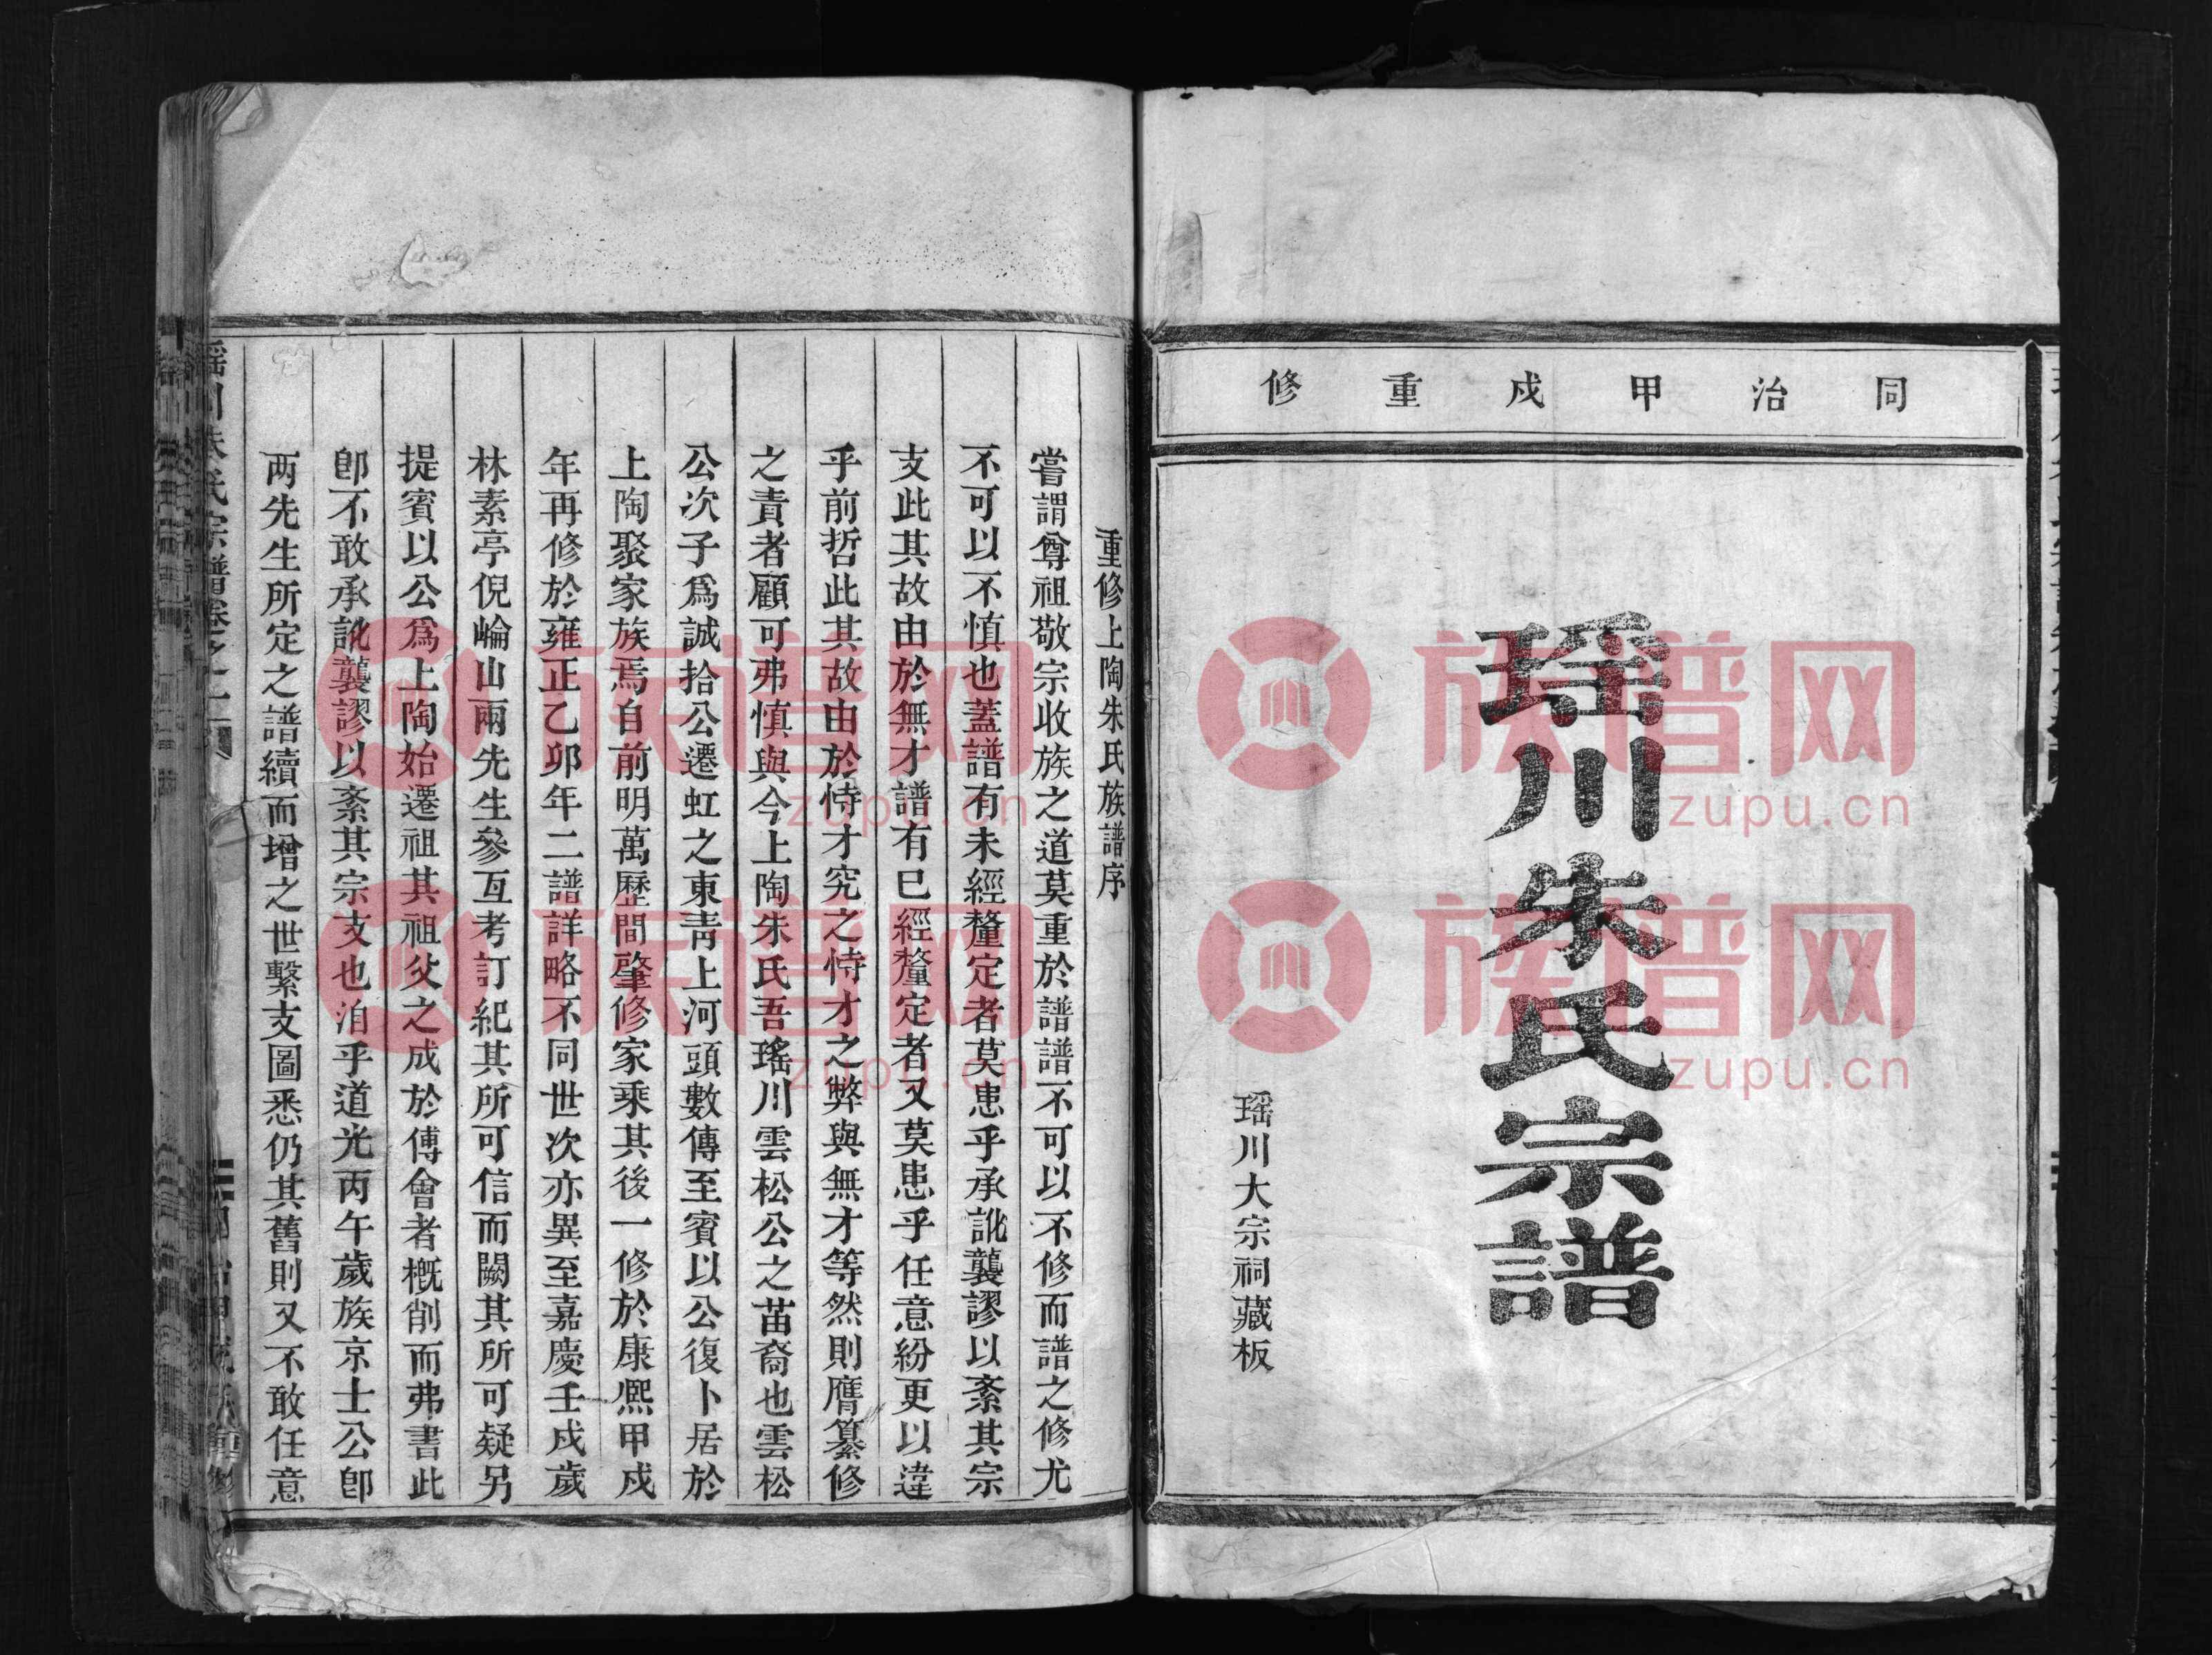 同治甲戌重修
瑶川朱氏宗譜
瑶川大宗祠藏板
重修上陶朱氏族譜序
嘗謂尊祖敬宗收族之道莫重於譜譜不可以不修而譜之修尤
不可以不慎也蓋譜有未經釐定者莫患乎承訛襲謬以紊其宗
支此其故由於無才譜有已經釐定者又莫患乎任意紛更以違
乎前哲此其故由於恃才究之恃才之弊與無才等然則膺纂修
之責者顧可弗慎與今上陶朱氏吾瑤川雲松公之苗裔也雲松
公次子爲誠拾公遷虹之東靑上河頭數傳至賓以公復卜居於
上陶聚家族焉自前明萬歷間肇修家乘其後一修於康熙甲戌
年再修於雍正乙卯年二譜詳略不同世次亦異至嘉慶壬戌歲
林素亭倪崘山兩先生參互考訂紀其所可信而闕其所可疑另
提賓以公爲上陶始遷祖其祖父之成於傅會者槪削而弗書此
卽不敢承訛襲謬以紊其宗支也洎乎道光丙午歲族京士公卽
两先生所定之譜續而增之世繫支圖悉仍其舊則又不敢任意
瑶川朱氏宗譜卷之上
族谱网
zupu.cn
族谱网
zupu.cn
族谱网
zupu.cn
族谱网
zupu.cn